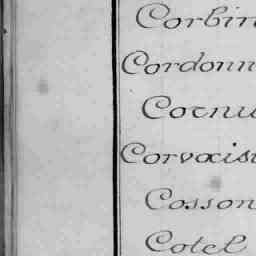 Corbin
Cordonn
Cornu
Corvaisi
Cosson
Cotel